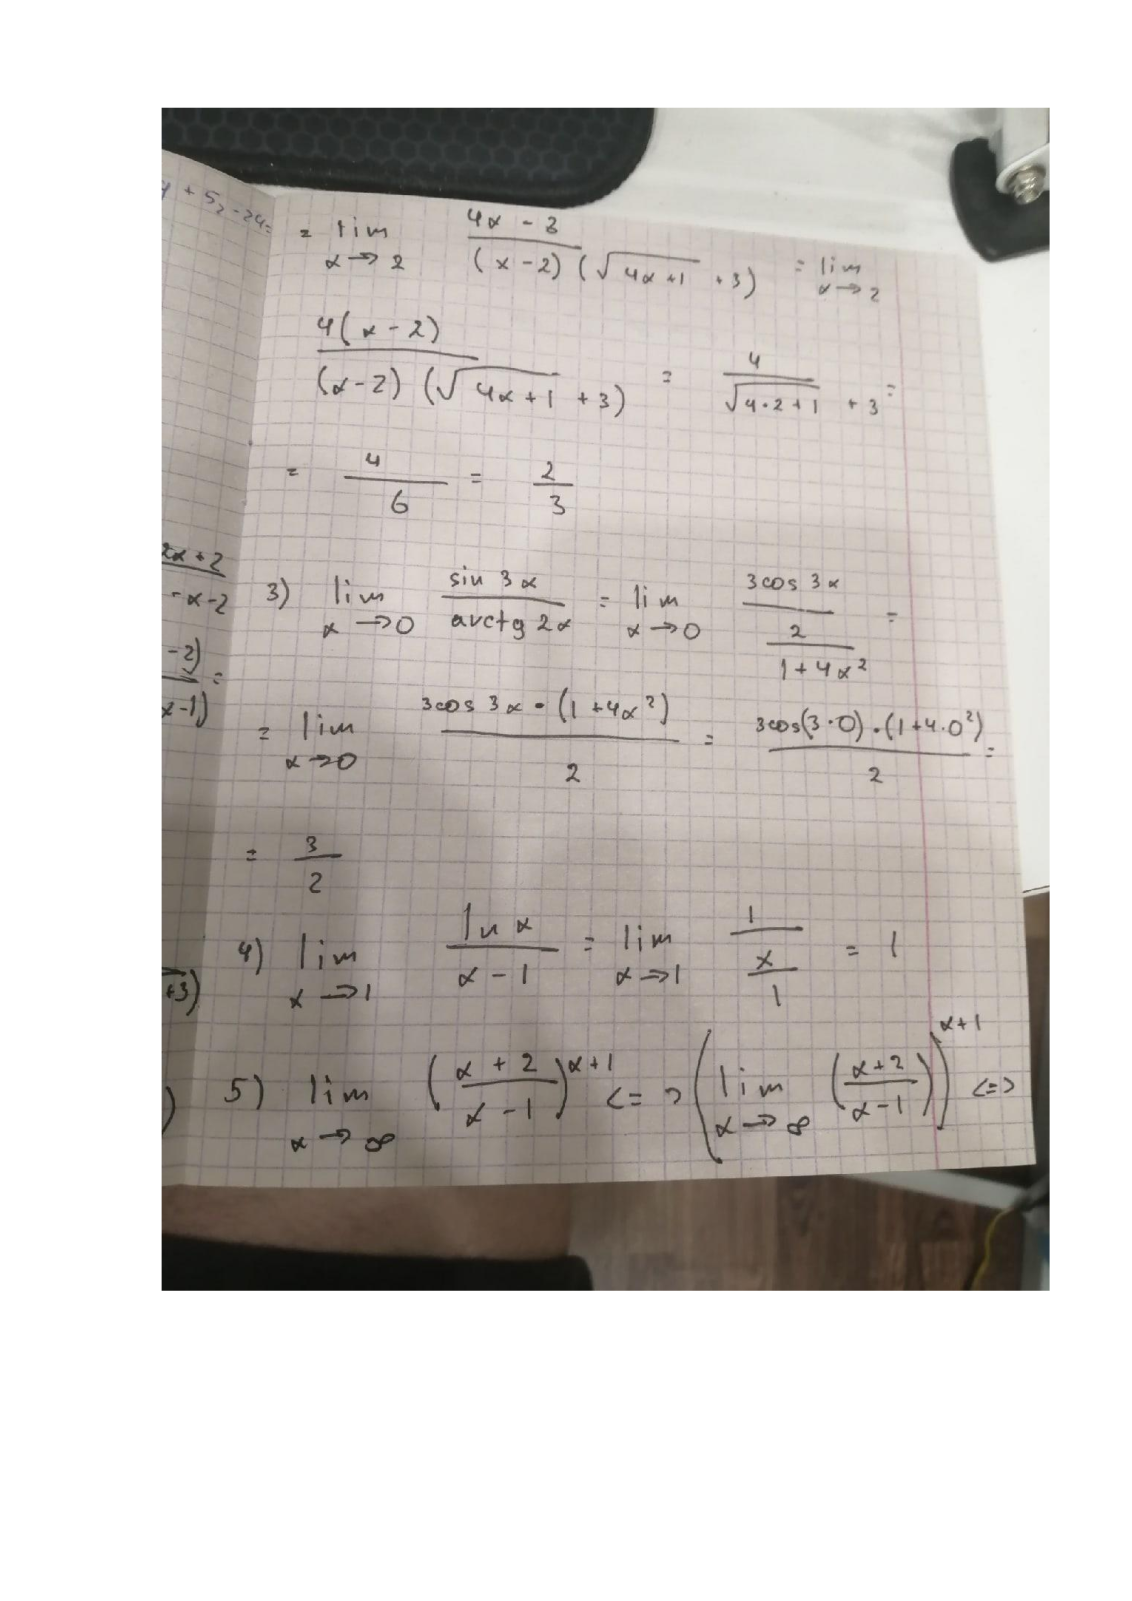 + 5, -24=
= lim x→2 4x - 3 / (x-2) (√4x+1 +3) = lim x→2
4(x-2) / (x-2) (√4x+1 +3) = 4 / √4·2+1 +3 =
= 4/6 = 2/3
2x+2
-x-2
3) lim x→0 sin 3x / arctg 2x = lim x→0 3cos 3x / 2 / 1+4x² =
-2) =
x-1)
= lim x→0 3cos 3x · (1+4x²) / 2 = 3cos(3·0)·(1+4·0²) / 2 =
= 3/2
4) lim x→1 ln x / x-1 = lim x→1 1 / x / 1 = 1
+3)
5) lim x→∞ (x+2 / x-1)^x+1 <=> (lim x→∞ (x+2 / x-1))^x+1 <=>
)